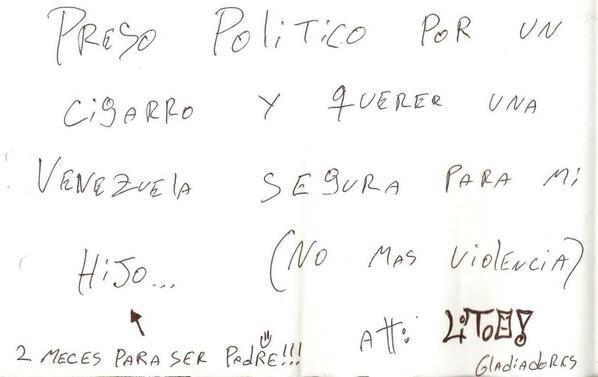 PRESO POLITICO POR UN
CIGARRO Y QUERER UNA
VENEZUELA SEGURA PARA MI
HIJO... (NO MAS VIOLENCIA)
2 MECES PARA SER PADRE!!!
Att: LiToE!
GLADIADORES